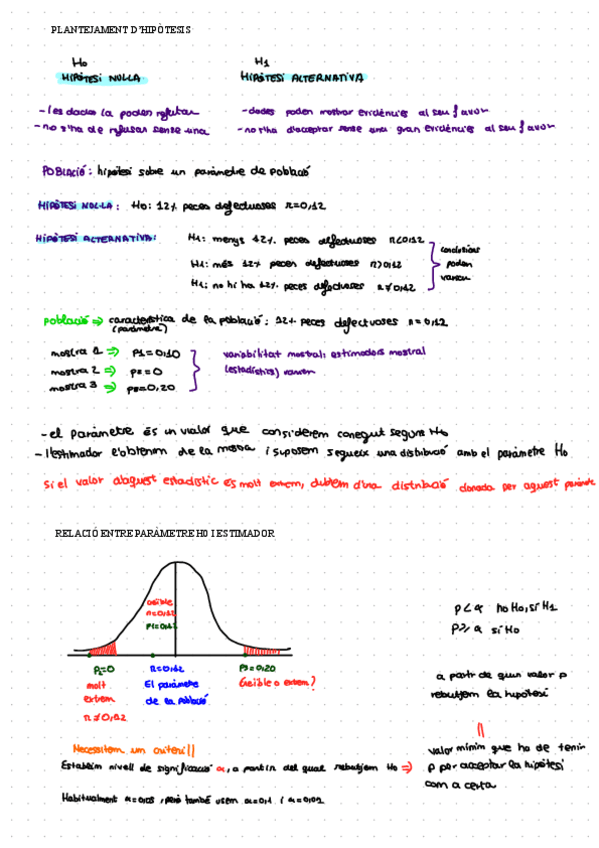 PLANTEJAMENT D'HIPÒTESIS
H0 H1
HIPÒTESI NUL·LA HIPÒTESI ALTERNATIVA
-les dades la poden refutar -dades poden mostrar evidències al seu favor
-no s'ha de refusar sense una -no s'ha d'acceptar sense una gran evidències al seu favor
POBLACIÓ: hipòtesi sobre un paràmetre de població
HIPÒTESI NUL·LA: H0: 12% peces defectuoses π=0,12
HIPÒTESI ALTERNATIVA: H1: menys 12% peces defectuoses π<0,12
H1: més 12% peces defectuoses π>0,12
H1: no hi ha 12% peces defectuoses π≠0,12
condicions
poden
variar
població ⇒ característica de la població: 12% peces defectuoses π=0,12
(paràmetre)
mostra 1 ⇒ P1=0,10
mostra 2 ⇒ P2=0
mostra 3 ⇒ P3=0,20
variabilitat mostral: estimadors mostral
(estadístics) varien
-el paràmetre és un valor que considerem conegut segons H0
-l'estimador l'obtenim de la mostra i suposem segueix una distribució amb el paràmetre H0
Si el valor d'aquest estadístic és molt extrem, dubtem d'una distribució donada per aquest paràmetre
RELACIÓ ENTRE PARÀMETRE H0 I ESTIMADOR
creïble
π=0,12
P1=0,1
P2=0 π=0,12 P3=0,20
molt El paràmetre Creïble o extrem?
extrem de la població
π≠0,12
p<α no H0, sí H1
p≥α sí H0
a partir de quin valor p
rebutjem la hipòtesi
valor mínim que ha de tenir
p per acceptar la hipòtesi
com a certa
Necessitem un criteri!!
Establim nivell de significació α, a partir del qual rebutjem H0 ⇒
Habitualment α=0,05, però també usem α=0,1 i α=0,01